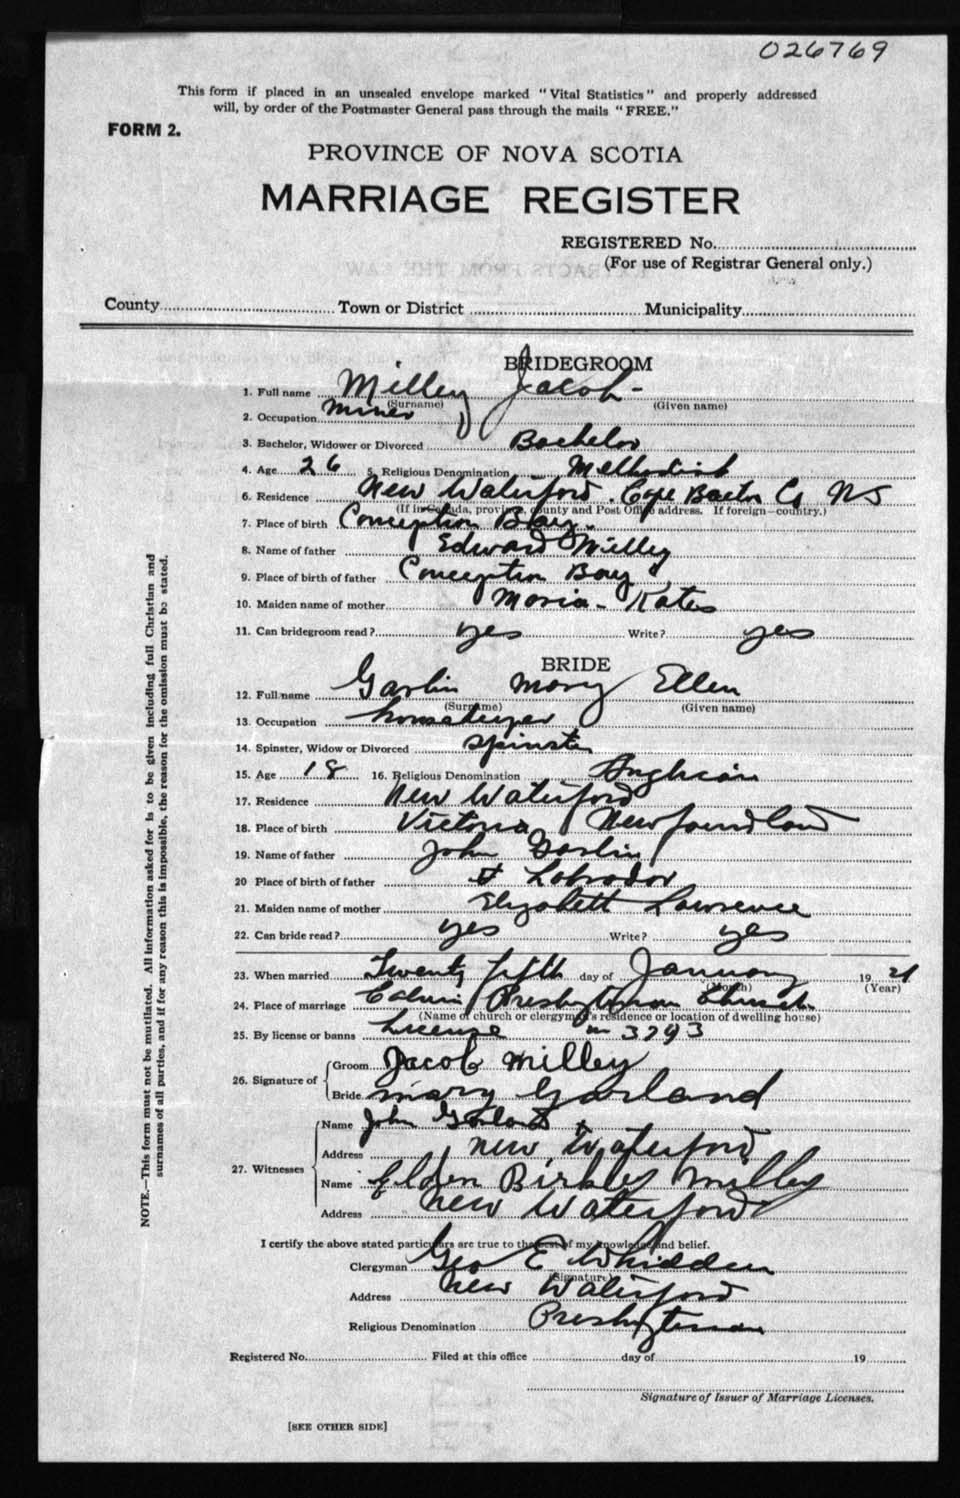 026769
This form if placed in an unsealed envelope marked "Vital Statistics" and properly addressed
will, by order of the Postmaster General pass through the mails "FREE."
FORM 2.
PROVINCE OF NOVA SCOTIA
MARRIAGE REGISTER
REGISTERED No.
(For use of Registrar General only.)
County Town or District Municipality
BRIDEGROOM
1. Full name Milley Jacob
(Surname) (Given name)
2. Occupation Miner
3. Bachelor, Widower or Divorced Bachelor
4. Age 26 5. Religious Denomination Methodist
6. Residence New Waterford. Cape Breton Co NS
(If in Canada, province, county and Post Office address. If foreign—country.)
7. Place of birth Conception Bay.
8. Name of father Edward Milley
9. Place of birth of father Conception Bay
10. Maiden name of mother Maria Kates
11. Can bridegroom read? yes Write? yes
BRIDE
12. Full name Garlin Mary Ellen
(Surname) (Given name)
13. Occupation housekeeper
14. Spinster, Widow or Divorced Spinster
15. Age 18 16. Religious Denomination Anglican
17. Residence New Waterford
18. Place of birth Victoria Newfoundland
19. Name of father John Garlin
20 Place of birth of father Labrador
21. Maiden name of mother Elizabeth Lawrence
22. Can bride read? yes Write? yes
23. When married Twenty fifth day of January 1921
(Month) (Year)
24. Place of marriage Calvin Presbyterian Church
(Name of church or clergyman's residence or location of dwelling house)
25. By license or banns License 3793
26. Signature of
Groom Jacob Milley
Bride Mary Garland
27. Witnesses
Name John Garland
Address New Waterford
Name Elden Birkley Milley
Address New Waterford
I certify the above stated particulars are true to the best of my knowledge and belief.
Clergyman Geo E Whidden
(Signature)
Address New Waterford
Religious Denomination Presbyterian
Registered No. Filed at this office day of 19
Signature of Issuer of Marriage Licenses.
[SEE OTHER SIDE]
NOTE.—This form must not be mutilated. All information asked for is to be given including full Christian and
surnames of all parties, and if for any reason this is impossible, the reason for the omission must be stated.